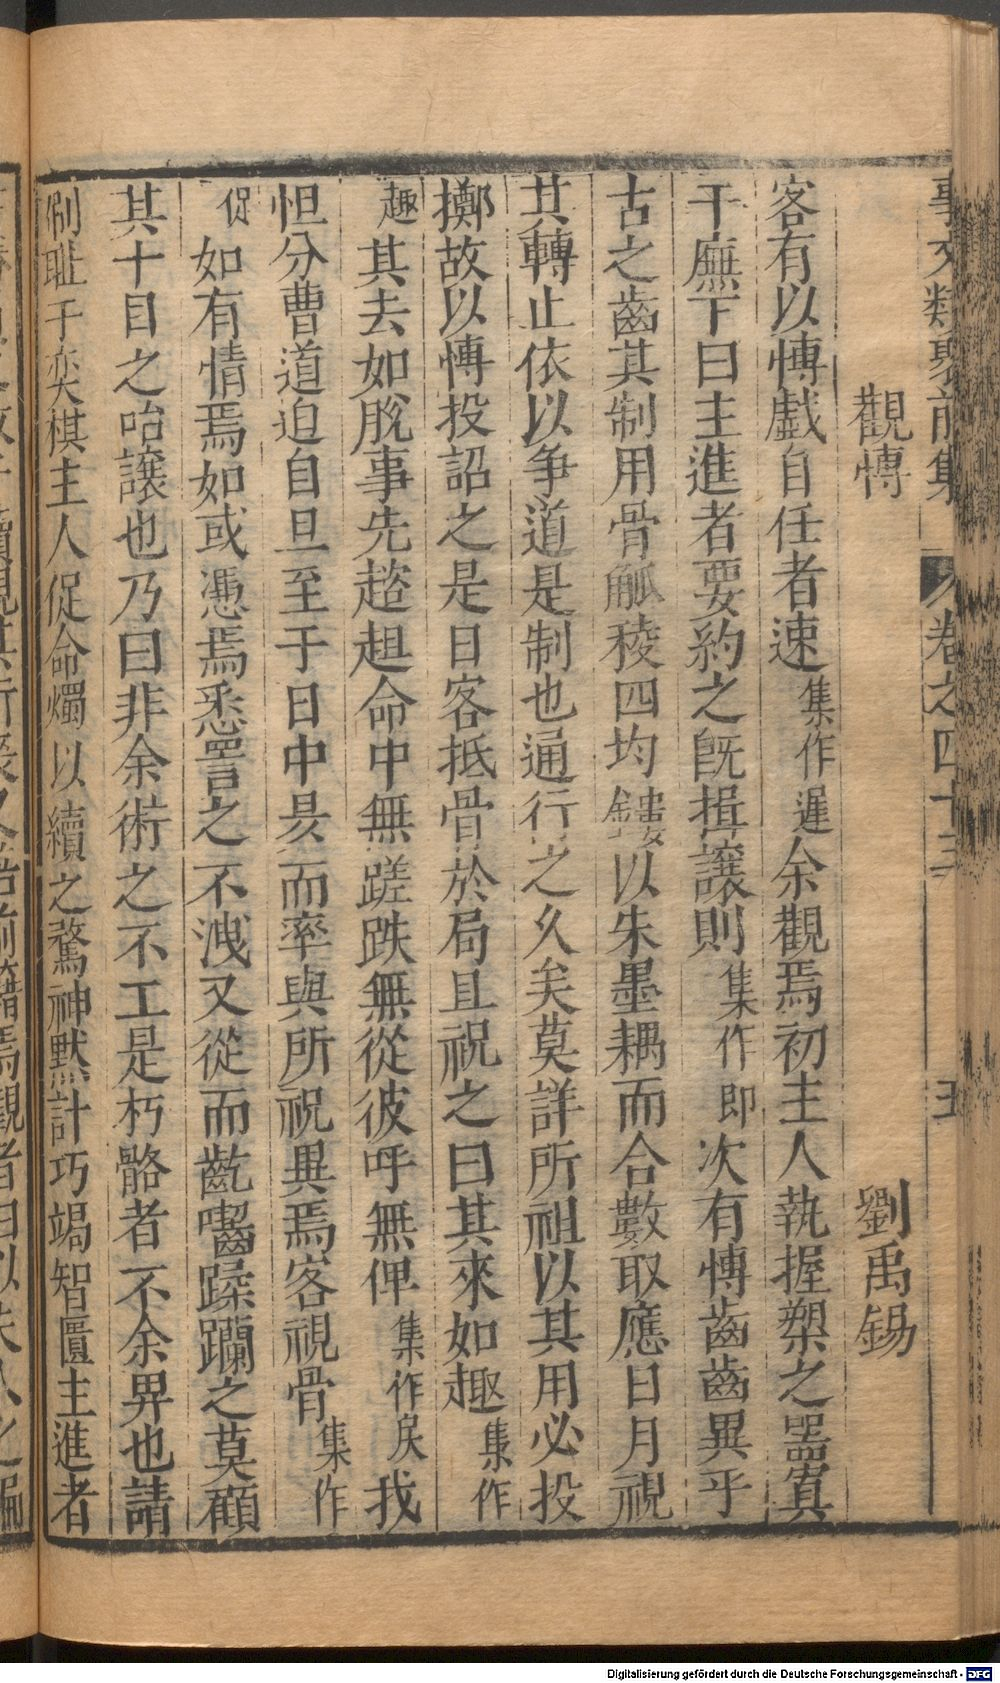 事文類聚前集 卷之四十三 五
觀愽 劉禹錫
客有以愽戲自任者速集作遲余觀焉初主人執握槊之噐寘
于廡下曰主進者要約之旣揖讓則集作即次有愽齒齒異乎
古之齒其制用骨觚稜四均鏤以朱墨耦而合數取應日月視
其轉止依以争道是制也通行之久矣莫詳所祖以其用必投
擲故以愽投詔之是日客抵骨於局且祝之曰其來如趣集作
趣其去如脫事先趦趄命中無蹉跌無從彼呼無俾集作戾我
怛分曹道迫自旦至于日中昃而率與所祝異焉客視骨集作
促如有情焉如或憑焉悉詈之不洩又從而齕嚙蹂躪之莫顧
其十目之咍讓也乃曰非余術之不工是朽骼者不余畀也請
刷耻于奕棋主人促命燭以續之騖神默計巧竭智匱主進者